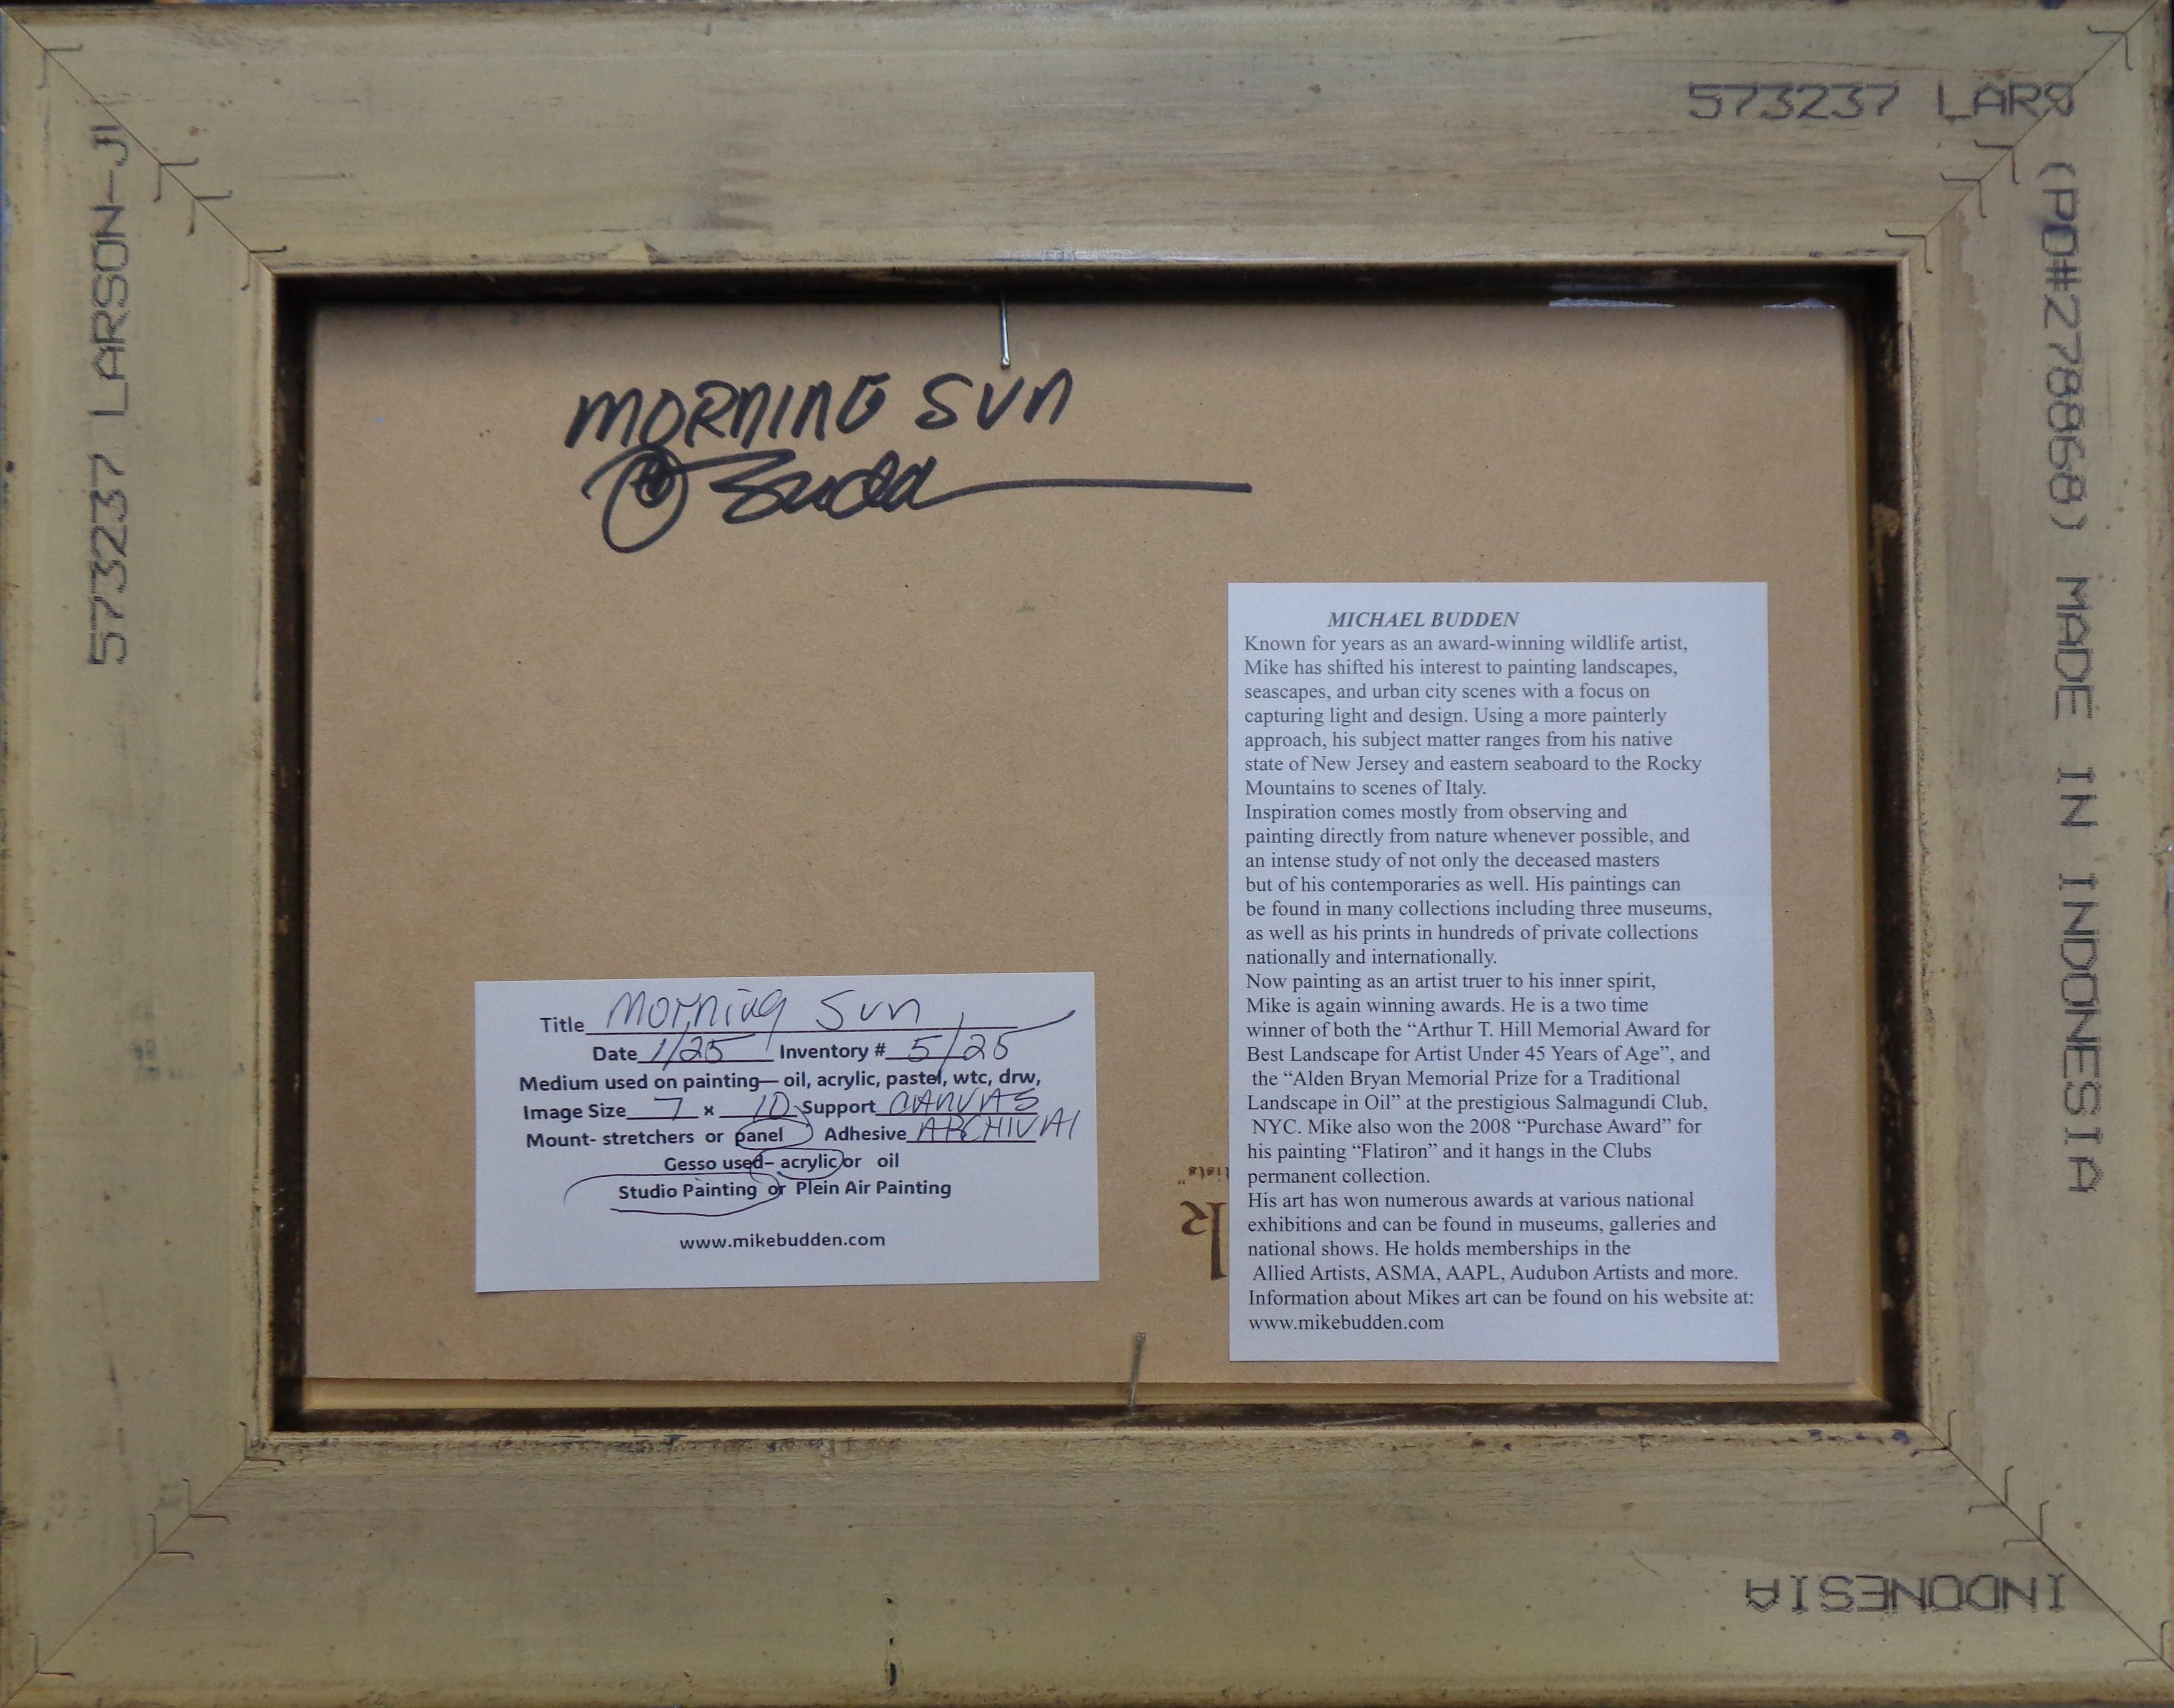 573237 LARS
573237 LARSON-J
(PO#278868) MADE IN INDONESIA
MORNING SUN
Budd
MICHAEL BUDDEN
Known for years as an award-winning wildlife artist,
Mike has shifted his interest to painting landscapes,
seascapes, and urban city scenes with a focus on
capturing light and design. Using a more painterly
approach, his subject matter ranges from his native
state of New Jersey and eastern seaboard to the Rocky
Mountains to scenes of Italy.
Inspiration comes mostly from observing and
painting directly from nature whenever possible, and
an intense study of not only the deceased masters
but of his contemporaries as well. His paintings can
be found in many collections including three museums,
as well as his prints in hundreds of private collections
nationally and internationally.
Now painting as an artist truer to his inner spirit,
Mike is again winning awards. He is a two time
winner of both the “Arthur T. Hill Memorial Award for
Best Landscape for Artist Under 45 Years of Age”, and
the “Alden Bryan Memorial Prize for a Traditional
Landscape in Oil” at the prestigious Salmagundi Club,
NYC. Mike also won the 2008 “Purchase Award” for
his painting “Flatiron” and it hangs in the Clubs
permanent collection.
His art has won numerous awards at various national
exhibitions and can be found in museums, galleries and
national shows. He holds memberships in the
Allied Artists, ASMA, AAPL, Audubon Artists and more.
Information about Mikes art can be found on his website at:
www.mikebudden.com
Title Morning Sun
Date 1/25 Inventory # 5/25
Medium used on painting— oil, acrylic, pastel, wtc, drw,
Image Size 7 x 10 Support CANVAS
Mount- stretchers or panel Adhesive ARCHIVAl
Gesso used– acrylic or oil
Studio Painting or Plein Air Painting
www.mikebudden.com
INDONESIA